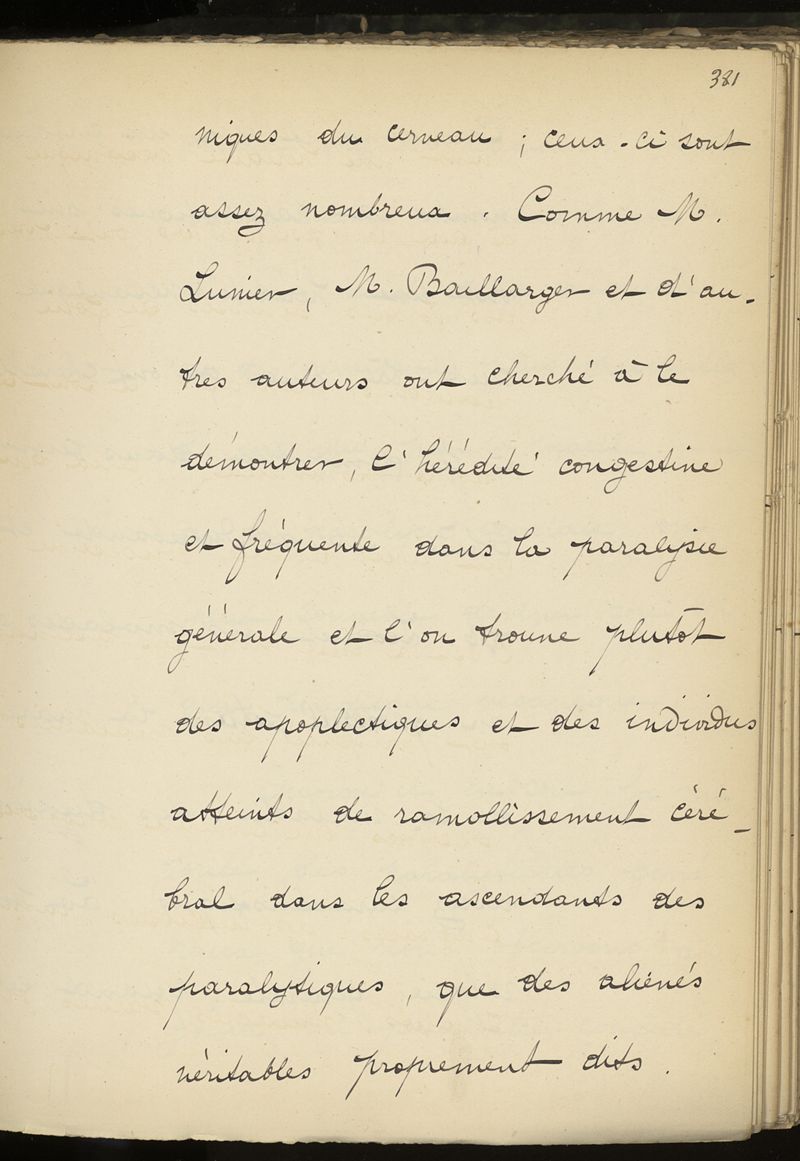 381
niques du cerveau ; ceux-ci sont
assez nombreux . Comme M.
Lunier, M. Baillarger et d'au-
tres auteurs ont cherché à le
démontrer, l'hérédité congestive
et fréquente dans la paralysie
générale et l'on trouve plutôt
des apoplectiques et des individus
atteints de ramollissement céré-
bral dans les ascendants des
paralytiques, que des aliénés
véritables proprement dits .